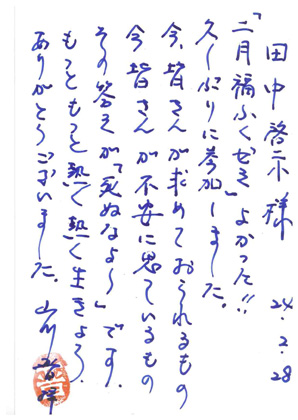 田中啓示様
「二月福ふくぜき」よかった!!
久しぶりに参加しました。
今、皆さんが求めておられるもの
今皆さんが不安に思っているもの
その答えが「死ぬなよ〜」です。
もっともっと熱く熱く生きよう。
ありがとうございました。山川
24.2.28